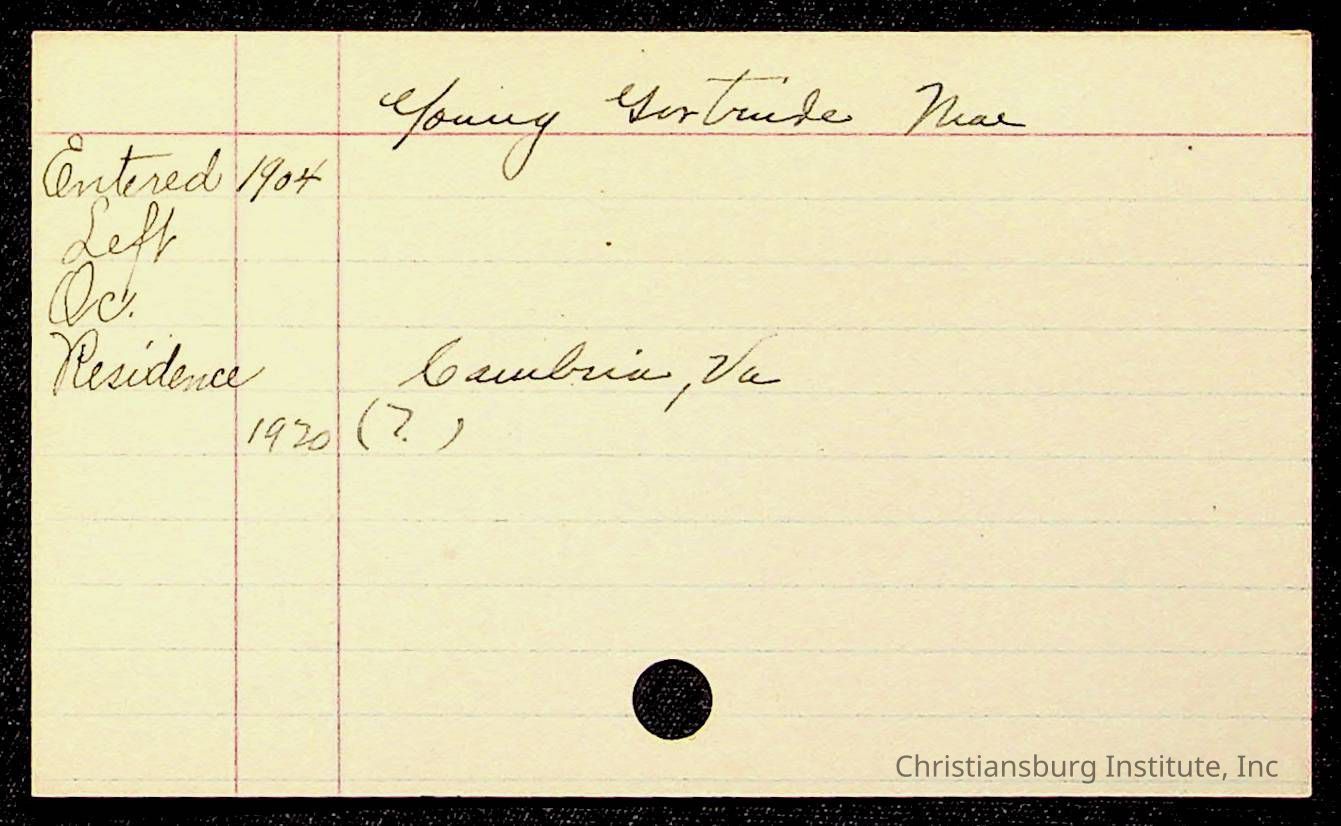 Young Gertrude Mae
Entered 1904
Left
Oc.
Residence Cambria, Va
1920 (?)
Christiansburg Institute, Inc